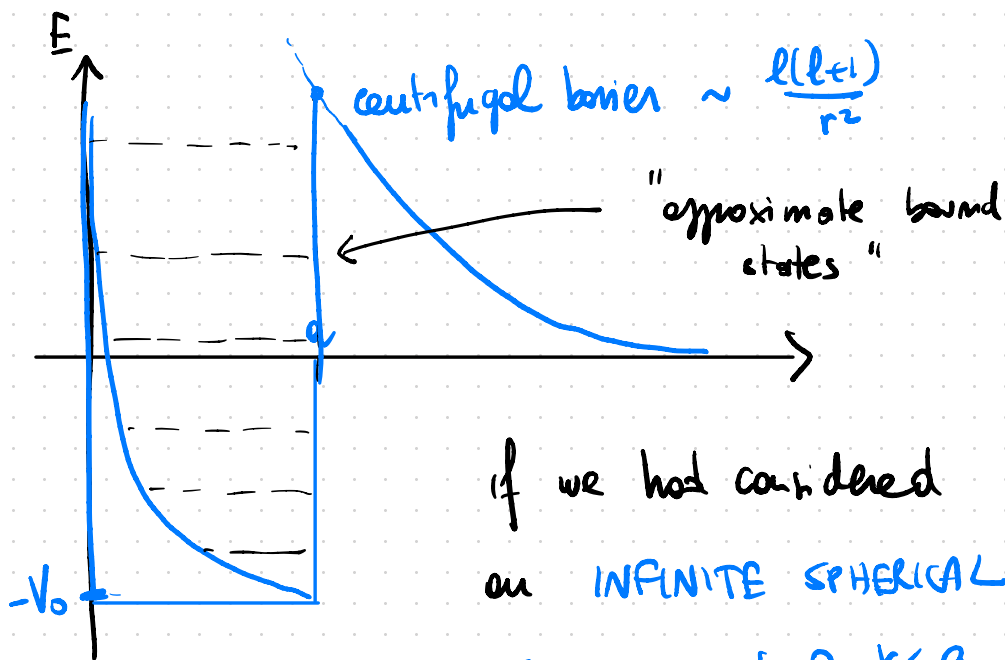 E
centrifugal barrier ~ l(l+1)
r²
"approximate bound
states"
a
if we had considered
-V₀
an INFINITE SPHERICAL